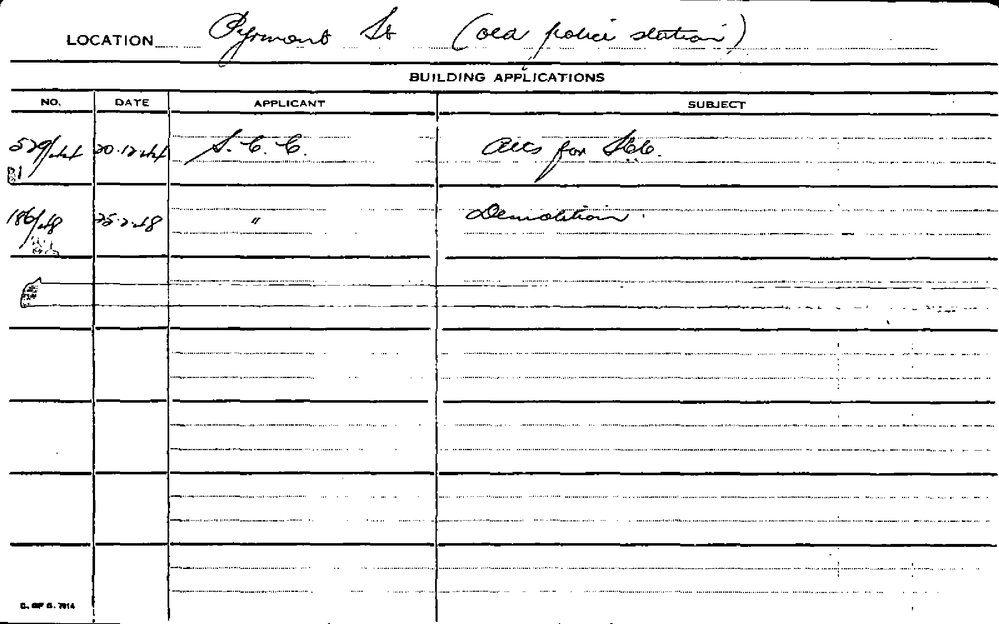 LOCATION Pyrmont St (old police station)
BUILDING APPLICATIONS
NO. DATE APPLICANT SUBJECT
529/44 20.12.44 S.C.C. Alts for SCC.
186/48 25-2-48 " Demolition.
C. OF S. 7914